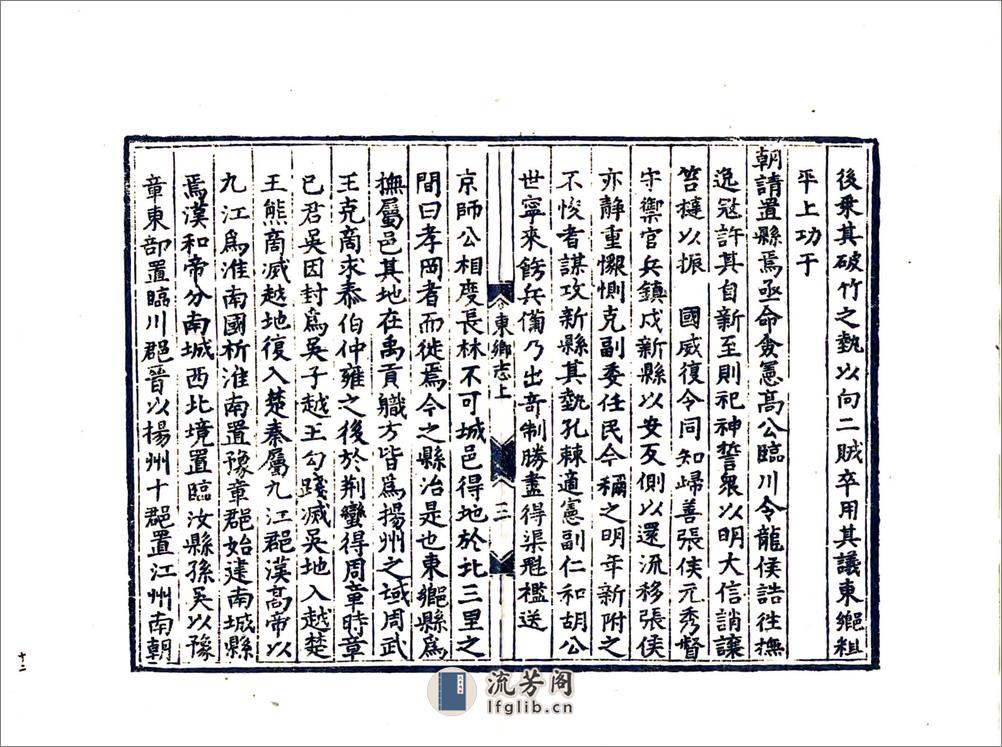 後乗其破竹之勢以向二賊卒用其議東鄉粗
平上功于
朝請置縣焉亟命僉憲高公臨川令龍侯誥徃撫
逸冦許其自新至則祀神誓衆以明大信誚讓
笞撻以振　國威復令同知歸善張侯元秀督
守禦官兵鎮戍新縣以安反側以還流移張侯
亦靜重惻克副委任民今稱之明年新附之
不悛者謀攻新縣其勢孔棘適憲副仁和胡公
世寧來飭兵備乃出奇制勝盡得渠魁檻送
東鄉志上
三
京師公相度長林不可城邑得地於北三里之
間曰孝岡者而徙焉今之縣治是也東鄉縣爲
撫屬邑其地在禹貢職方皆爲揚州之域周武
王克商求泰伯仲雍之後於荆蠻得周章時章
已君吳因封爲吳子越王勾踐滅吳地入越楚
王熊商滅越地復入楚秦屬九江郡漢高帝以
九江爲淮南國析淮南置豫章郡始建南城縣
焉漢和帝分南城西北境置臨汝縣孫吳以豫
章東部置臨川郡晉以楊州十郡置江州南朝
十二
流芳阁
lfglib.cn